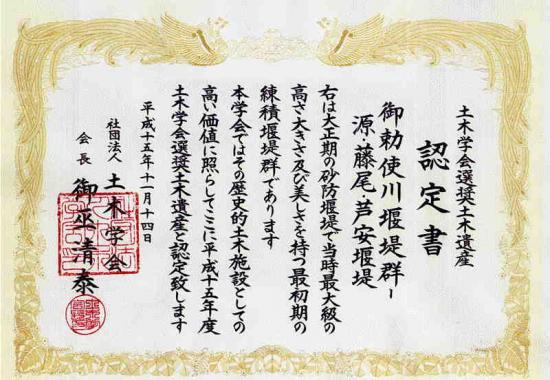 土木学会選奨土木遺産
認定書
御勅使川堰堤群-
源・藤尾・芦安堰堤
右は大正期の砂防堰堤で当時最大級の
高さ・大きさ及び美しさを持つ最初期の
練積堰堤群であります
本学会ではその歴史的土木施設としての
高い価値に照らしてここに平成十五年度
土木学会選奨土木遺産と認定致します
平成十五年十一月十四日
社団法人 土木学会
会長 御巫清泰